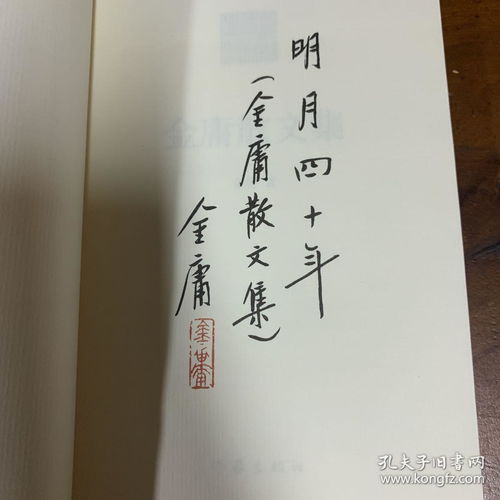 明月四十年
（金庸散文集）
金庸
孔夫子旧书网
www.kongfz.com